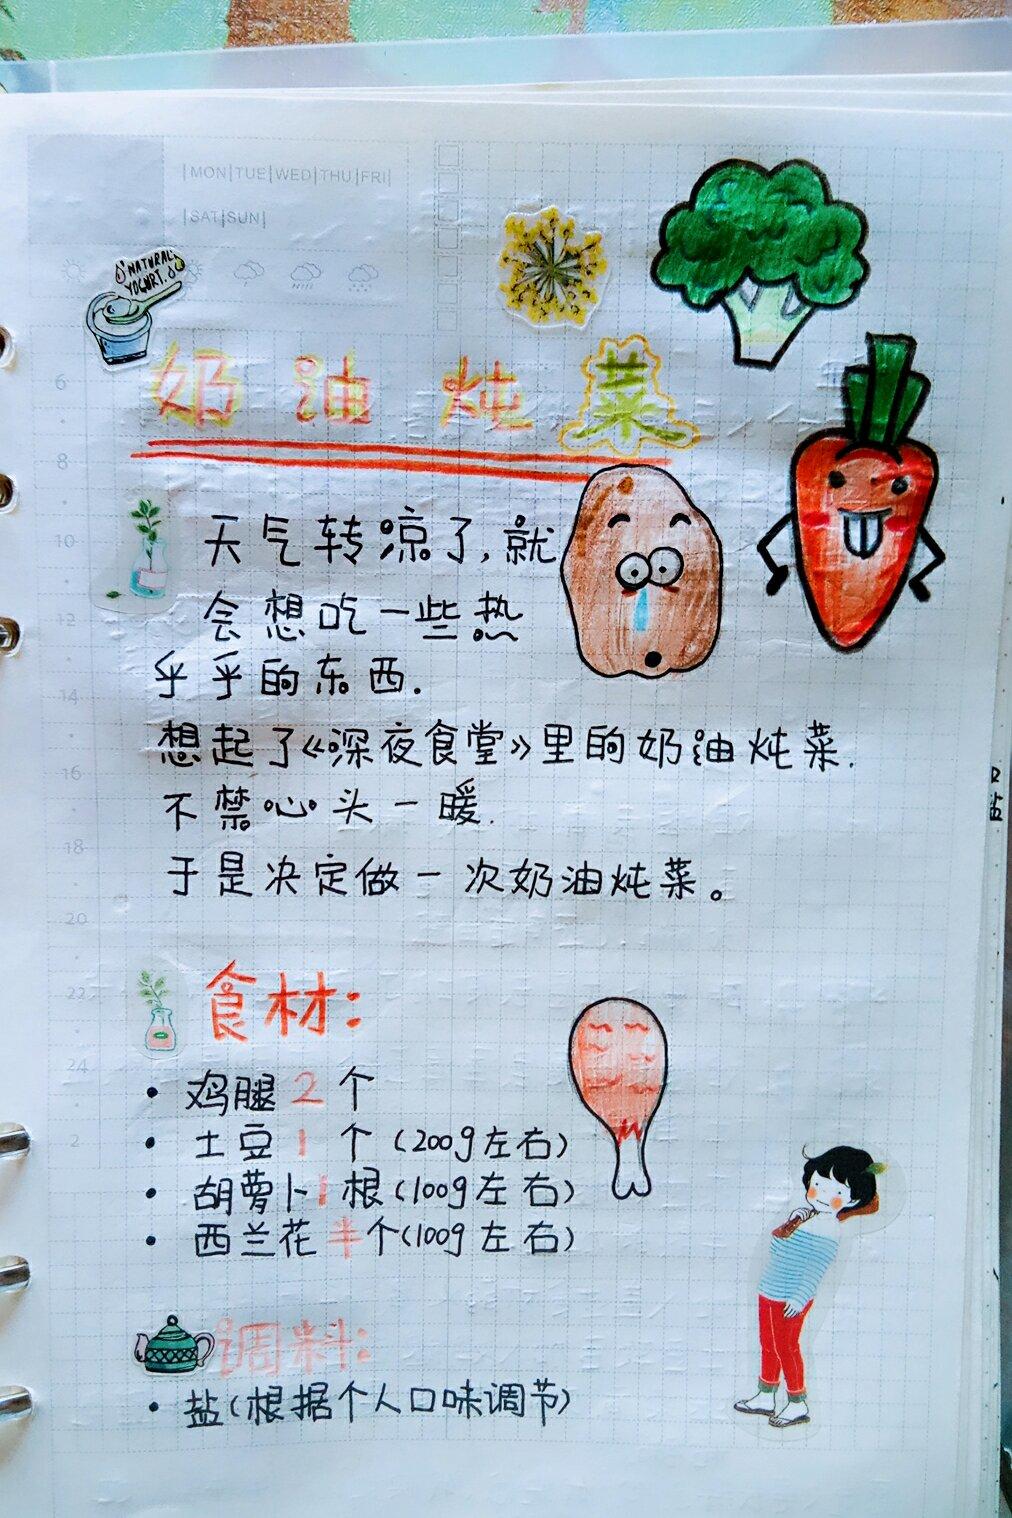 MON|TUE|WED|THU|FRI
SAT|SUN
NATURAL
YOGURT.
奶油炖菜
天气转凉了,就
会想吃一些热
乎乎的东西.
想起了《深夜食堂》里的奶油炖菜.
不禁心头一暖.
于是决定做一次奶油炖菜。
食材:
• 鸡腿2个
• 土豆1个(200g左右)
• 胡萝卜1根(100g左右)
• 西兰花半个(100g左右)
调料:
• 盐(根据个人口味调节)
6
8
10
12
14
16
18
20
22
24
2